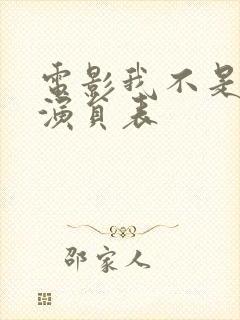 電影我不是
演員表
邵家人